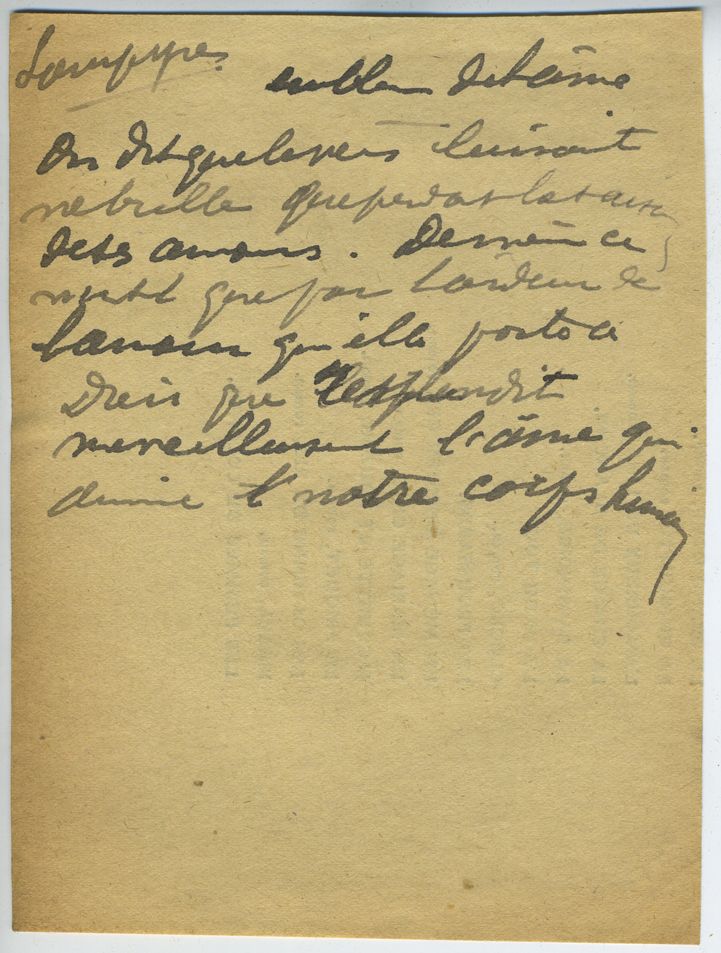 Lampyres
emblem de l'âme
On dit que le vers luisant
ne brille que pendant la saison
de ses amours. De même ce
n'est que par l'ardeur de
l'amour qu'elle porte à
Dieu que resplendit
merveilleusement l'âme qui
anime l' notre corps humain